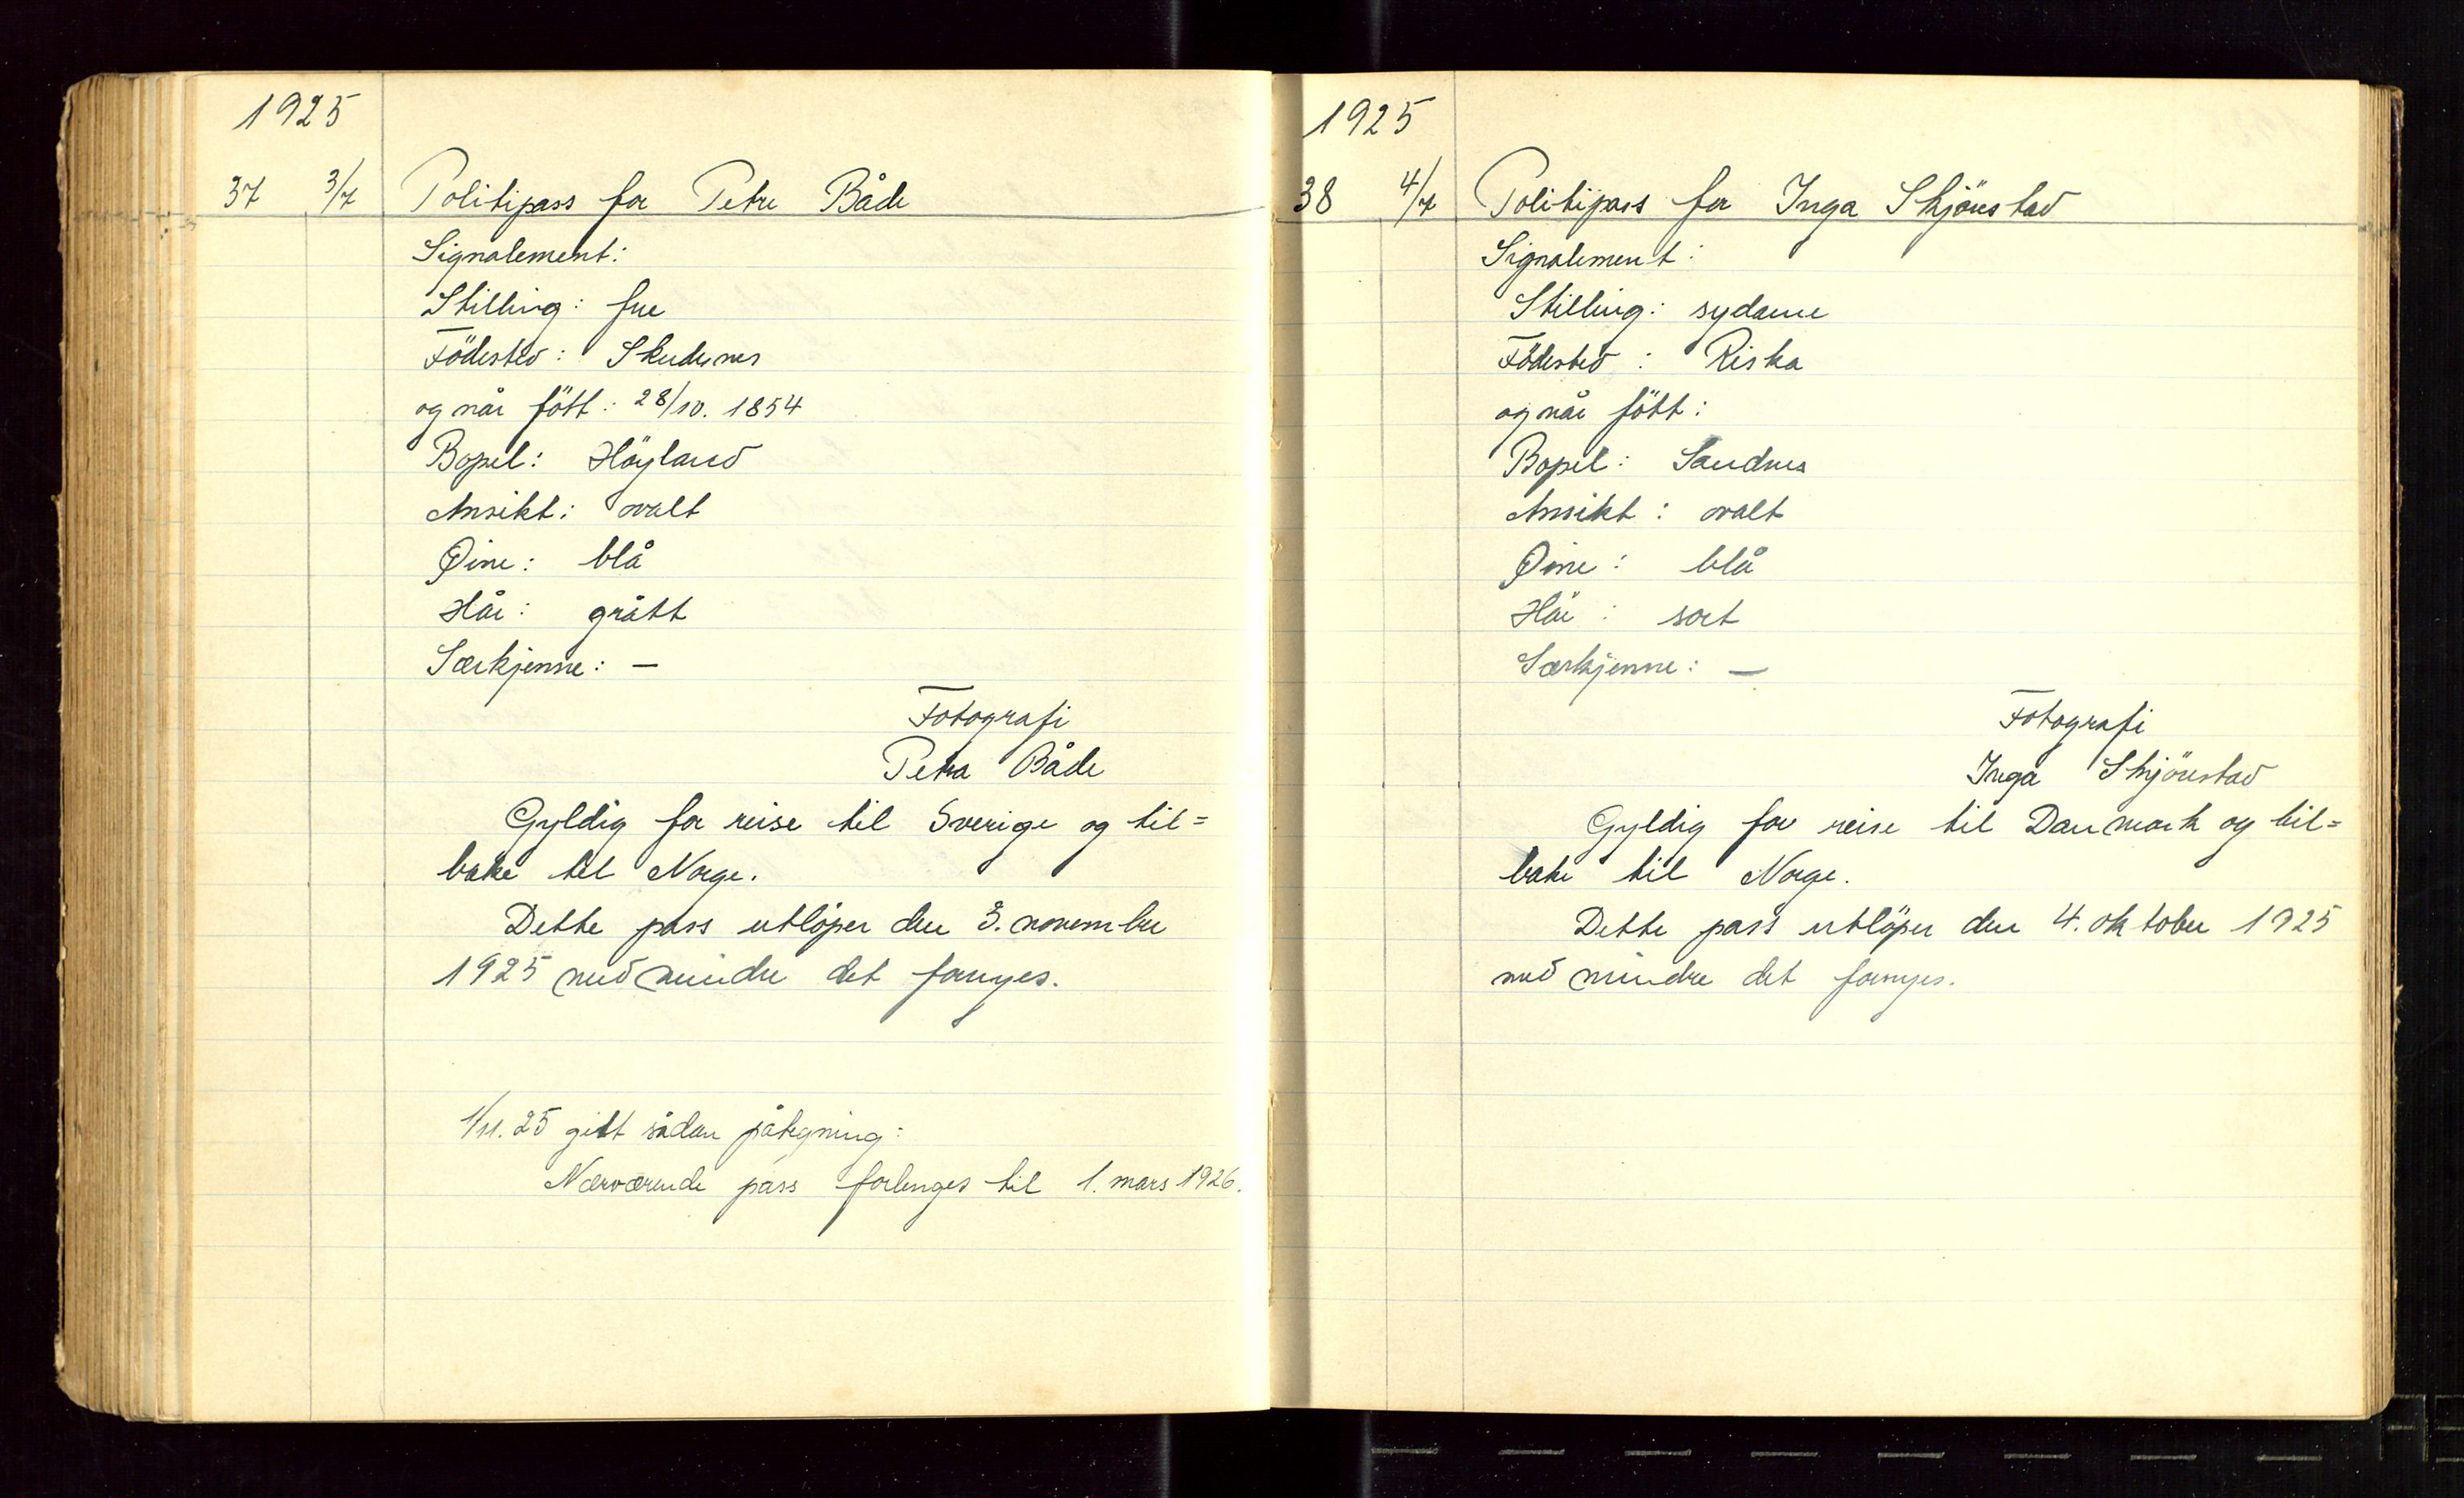 1925
37 3/7 Politipass for Petre Både
Signalement:
Stilling: frue
Födested: Skudesnes
og når fött: 28/10. 1854
Bopel: Höyland
Ansikt: ovalt
Øine: blå
Hår: grått
Særkjenne: —
Fotografi
Petra Både
Gyldig for reise til Sverige og til=
bake til Norge.
Dette pass utlöper den 3. november
1925 med mindre det fornyes.
1/11. 25 gitt sådan påtegning:
Nærværende pass forlenges til 1. mars 1926.
1925
38 4/7 Politipass for Inga Skjönstad
Signalement:
Stilling: sydame
Födested: Riska
og når fött:
Bopel: Sandnes
Ansikt: ovalt
Øine: blå
Hår: sort
Særkjenne: —
Fotografi
Inga Skjönstad
Gyldig for reise til Danmark og til=
bake til Norge.
Dette pass utlöper den 4. oktober 1925
med mindre det fornyes.